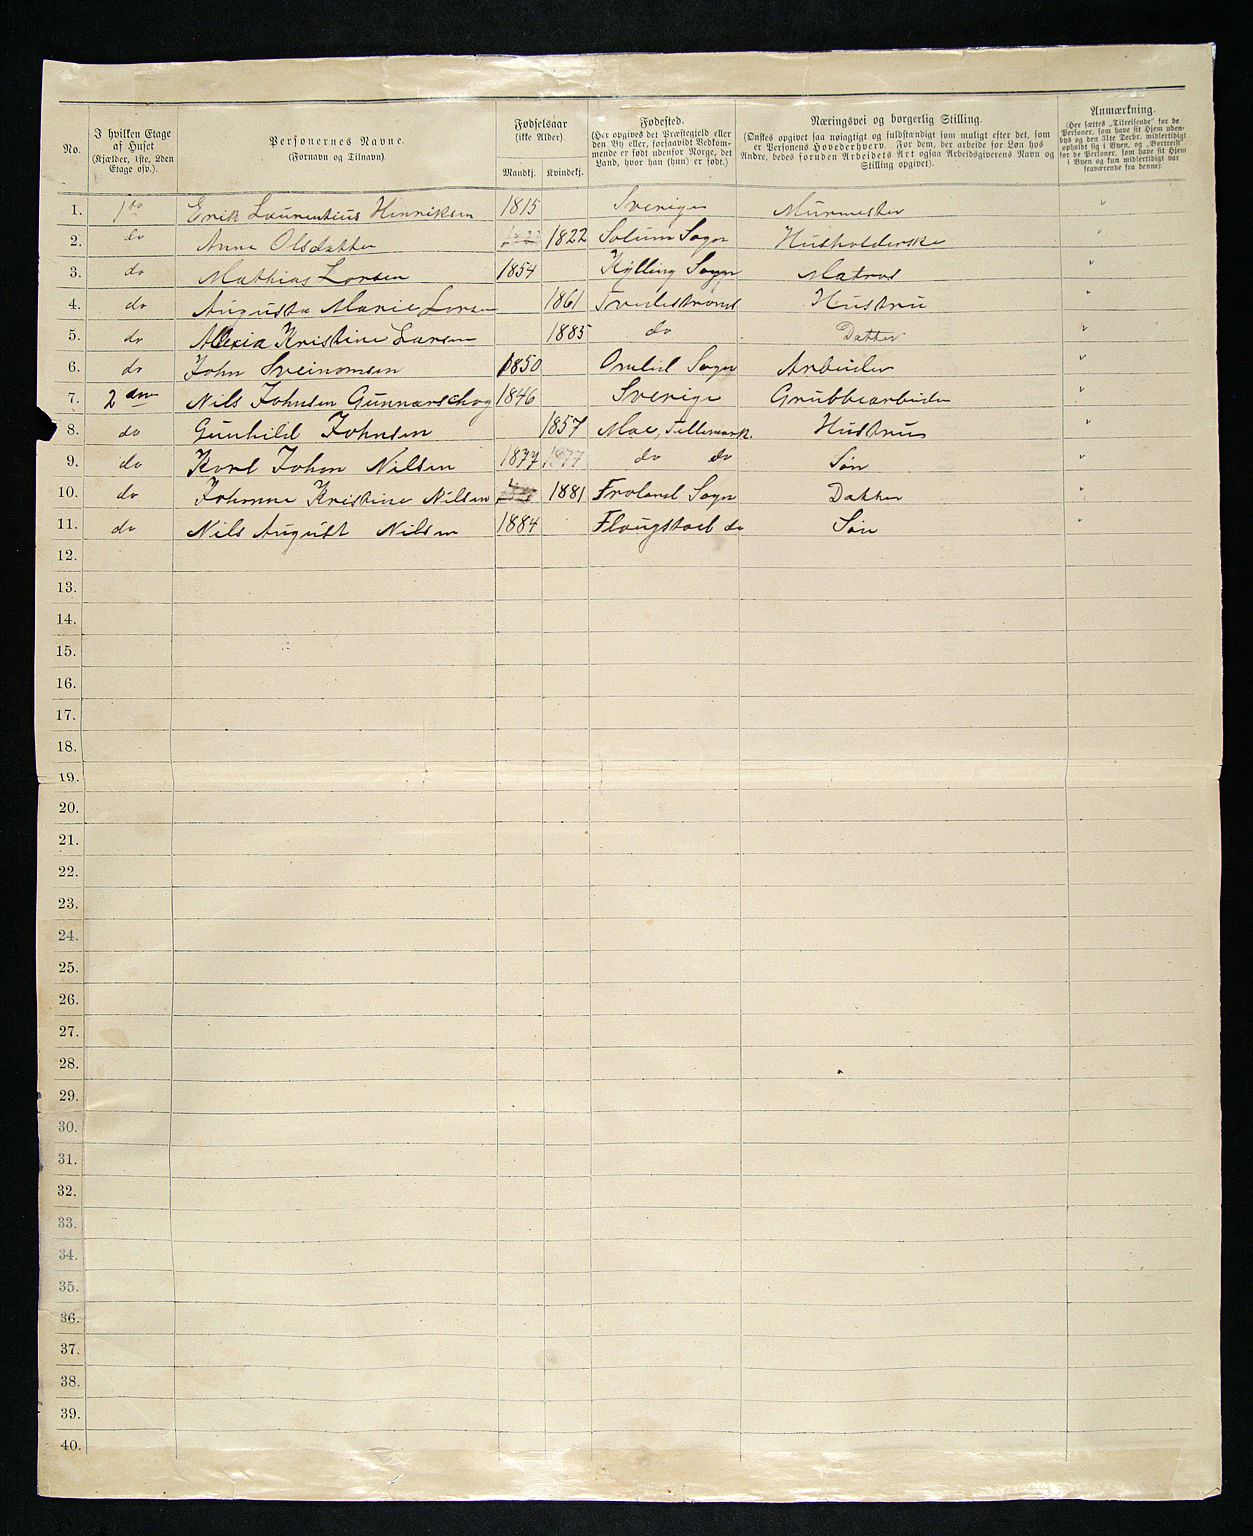 No. | I hvilken Etage af Huset (Kjælder, 1ste, 2den Etage osv.). | Personernes Navne. (Fornavn og Tilnavn). | Fødselsaar (ikke Alder). Mandkj. | Kvindekj. | Fødested. (Her opgives det Præstegjeld eller den By eller, forsaavidt Vedkommende er født udenfor Norge, det Land, hvor han (hun) er født.) | Næringsvei og borgerlig Stilling. (Ønskes opgivet saa nøiagtigt og fuldstændigt som muligt efter det, som er Personens Hovederhverv. For dem, der arbeide for Løn hos Andre, bedes foruden Arbeidets Art ogsaa Arbeidsgiverens Navn og Stilling opgivet). | Anmærkning. (Her sættes „Tilreisende" for de Personer, som have sit Hjem udenbys og den 31te Decbr. midlertidigt opholdt sig i Byen, og „Bortreist" for de Personer, som have sit Hjem i Byen og kun midlertidigt var fraværende fra denne).
1. | 1ste | Erik Laurentius Henriksen | 1815 | | Sverige | Murmester | "
2. | do | Anne Olsdatter | 1822 | 1822 | Solum Sogn | Husholderske | "
3. | do | Mathias Larsen | 1854 | | Kylling Sogn | Matros | "
4. | do | Augusta Marie Larsen | | 1861 | Tvedestrand | Hustru | "
5. | do | Alexia Kristine Larsen | | 1885 | do | Datter | "
6. | do | John Sveinomsen | 1850 | | Omlid Sogn | Arbeider | "
7. | 2den | Nils Johnsen Gunnarschog | 1846 | | Sverige | Grubbearbeider | "
8. | do | Gunhild Johnsen | | 1857 | Moe, Tellemark. | Hustru | "
9. | do | Karl Johan Nilsen | 1877 | 1877 | do do | Søn | "
10. | do | Johanne Kristine Nilsen | | 1881 | Froland Sogn | Datter | "
11. | do | Nils August Nilsen | 1884 | | Flaugstad do | Søn | "
12.
13.
14.
15.
16.
17.
18.
19.
20.
21.
22.
23.
24.
25.
26.
27.
28.
29.
30.
31.
32.
33.
34.
35.
36.
37.
38.
39.
40.